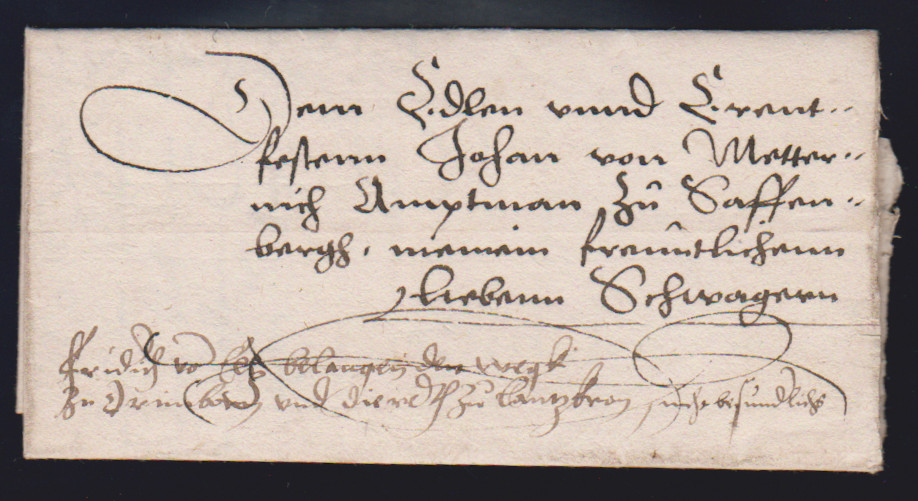 Dem Edlen vnnd Erent--
festenn Johan von Metter--
nich Amptman Zů Saffen--
bergh, meinem freůntlichenn
liebenn Schwagern
belangen den wegk
vnd Zu Lantzkron